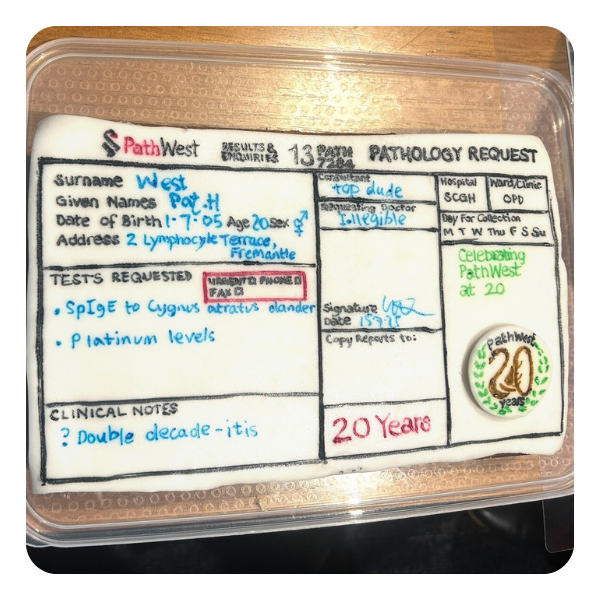 PathWest RESULTS & ENQUIRIES 13 PATH 7284 PATHOLOGY REQUEST
Surname West
Given Names Pat.H
Date of Birth 1-7-05 Age 20 Sex ⚥
Address 2 Lymphocyte Terrace,
Fremantle
Consultant
top dude
Requesting Doctor
Illegible
Hospital
SCGH
Ward/Clinic
OPD
Day For Collection
M T W Thu F S Su
TESTS REQUESTED
URGENT □ PHONE □
FAX □
• SpIgE to Cygnus atratus dander
• Platinum levels
Signature
Date
Copy Reports to:
Celebrating
PathWest
at 20
PathWest
20
years
CLINICAL NOTES
? Double decade-itis
20 Years